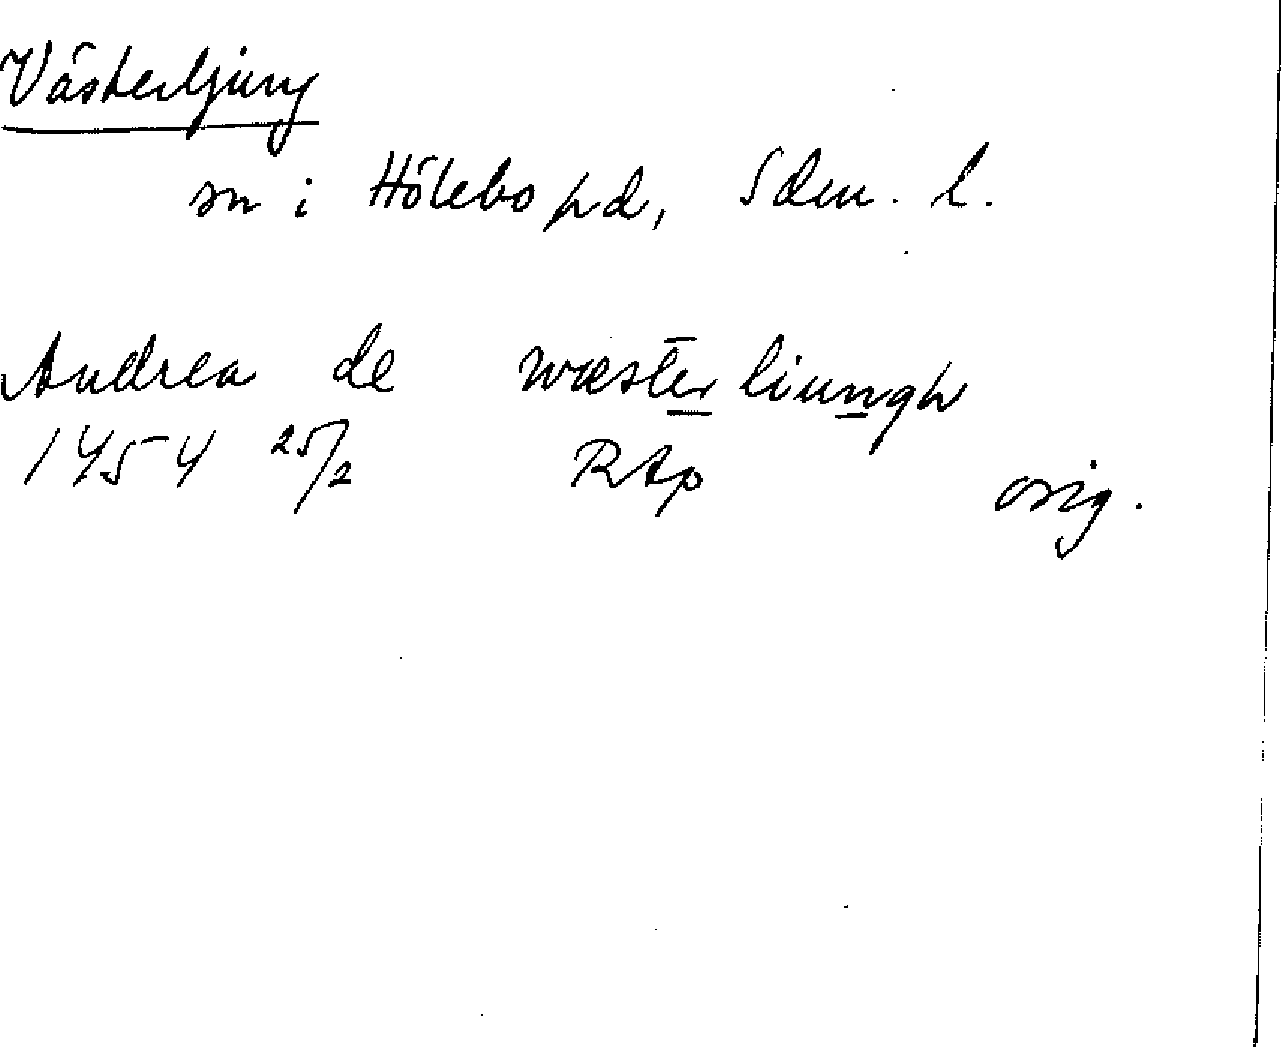 Västerljung
sn i Hölebo hd, Sdm. l.
Andrea de wæster liungh
1454 25/2 RAp orig.